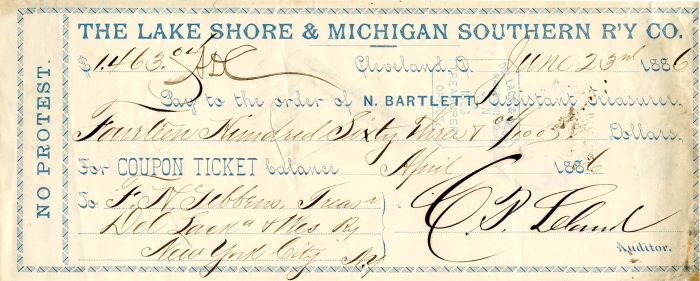 THE LAKE SHORE & MICHIGAN SOUTHERN R'Y CO.
$1,463.02/100 Cleveland, O. June 23rd 1886
Pay to the order of N. BARTLETT, Assistant Treasurer,
Fourteen Hundred Sixty Three & 02/100 Dollars.
For COUPON TICKET balance April 1886
To F. H. Gibbens, Treasr
Del Lackn & Wes Ry
New York City N.Y.
C. P. Leland
Auditor.
NO PROTEST.